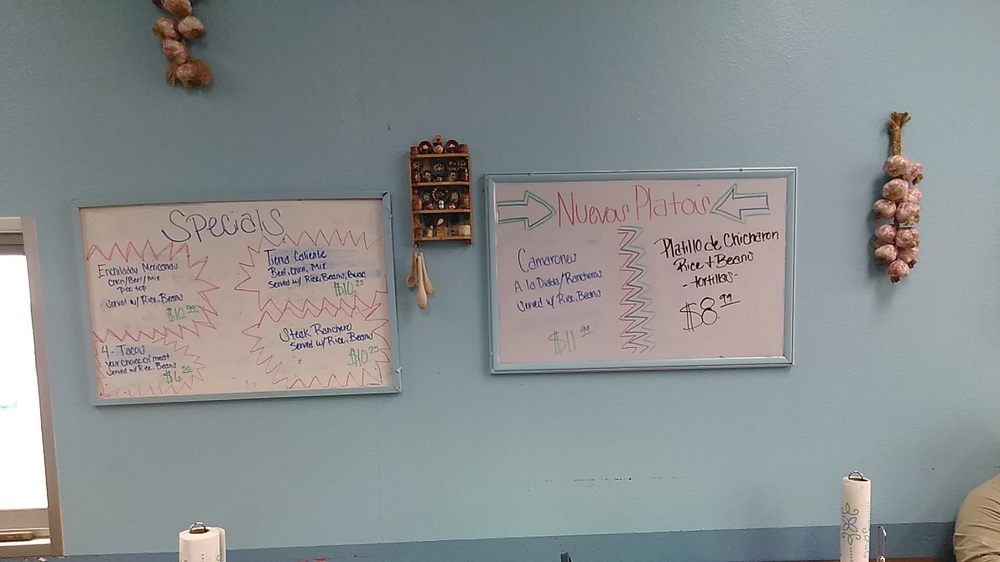 Specials
Enchiladas Mexicanas
Chkn/Beef/Mix
Pico top
Served w/ Rice, Beans
$10.99
4 - Tacos
Your choice of meat
Served w/ Rice, Beans
$6.50
Tierra Caliente
Beef, Chkn, Mix
Served w/ Rice, Beans, Guac
$10.25
Steak Ranchero
Served w/ Rice, Beans
$10.25
Nuevos Platos
Camarones
A la Diabla/Rancheros
Served w/ Rice, Beans
$11.99
Platillo de Chicharon
Rice + Beans
- tortillas -
$8.99